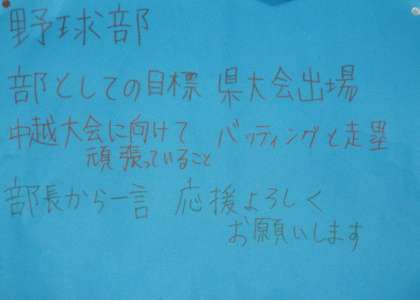 野球部
部としての目標 県大会出場
中越大会に向けて バッティングと走塁
頑張っていること
部長から一言 応援よろしく
お願いします